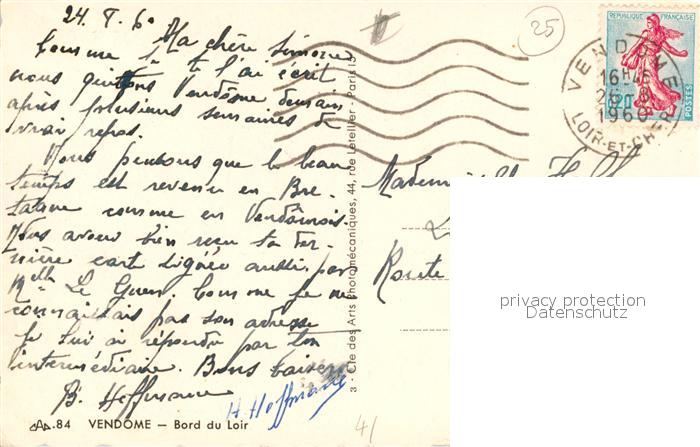 24. 8. 60
Ma chère Simone
Comme je te l'ai écrit
nous quittons Vendôme demain
après plusieurs semaines de
vrai repos.
Nous pensons que le beau
temps est revenu en Bre-
tagne comme en Vendômois.
Nous avons bien reçu ta der-
nière carte signée aussi par
Melle Le Guen. Comme je ne
connaissais pas son adresse
je lui ai répondu par ton
intermédiaire. Bons baisers
B. Hoffmann
H. Hoffmann
84 VENDOME — Bord du Loir
3 - Cie des Arts Photomécaniques, 44, rue Letellier - Paris 15
25
RÉPUBLIQUE FRANÇAISE
0,20
POSTES
VENDOME
16H45
1960
LOIR-ET-CHER
Mademoiselle
Route
41
privacy protection
Datenschutz